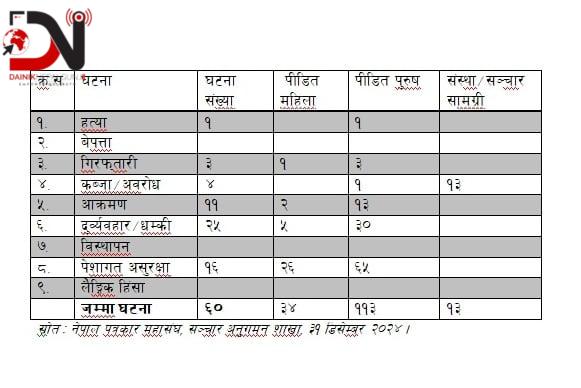 DN
क्र.स. घटना घटना संख्या पीडित महिला पीडित पुरुष संस्था/सञ्चार सामग्री
१. हत्या १ १
२. बेपत्ता
३. गिरफ्तारी ३ १ ३
४. कब्जा/अवरोध ४ १ १३
५ आक्रमण ११ २ १३
६. दुर्व्यवहार/धम्की २५ ५ ३०
७. विस्थापन
८. पेशागत असुरक्षा १६ २६ ६५
९. लैङ्गिक हिंसा
जम्मा घटना ६० ३४ ११३ १३
स्रोत : नेपाल पत्रकार महासंघ, सञ्चार अनुगमन शाखा, ३१ डिसेम्बर २०२४ ।